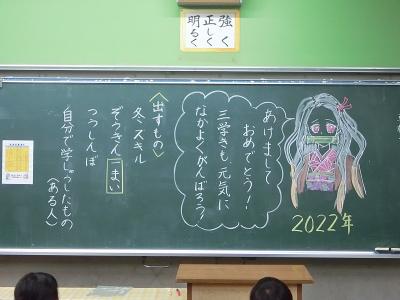 強く
正しく
明るく
あけまして
おめでとう!
三学きも、元気に
なかよくがんばろう!
2022年
<出すもの>
冬スキル
ぞうきん一まい
つうしんぼ
自分で学しゅうしたもの
(ある人)